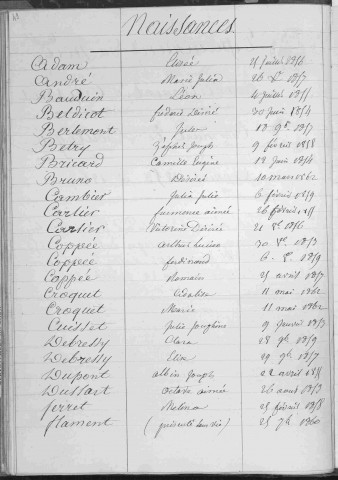 Naissances.
Adam Aimée 21 juillet 1856
André Marie Julia 26 1857
Bauduin Léon 4 juillet 1855
Beldicot fréderic Désiré 30 juin 1854
Berlemont Jules 13 9bre 1857
Betry Zéphir Joseph 9 février 1858
Bricard Camille Eugène 18 juin 1854
Bruno Désiré 10 mars 1862
Cambier Julia Julie 6 février 1859
Carlier aimée 26 février
Carlier Victorine Désirée 21 1856
Coppée arthur lucien 30 1853
Coppée ferdinand 6 1859
Coppée Romain 21 avril 1857
Croquet 11 mai 1862
Croquet Marie 11 mai 1862
Cuisset Julie Joséphine 9 janvier 1853
Debressy Clara 28 9bre 1859
Debressy Elise 29 9bre 1857
Dupont albin Joseph 22 avril
Dussart octave aimée 26 aout 1853
ferret 25 février 1858
flament (présenté sans vie) 25 7bre 1860